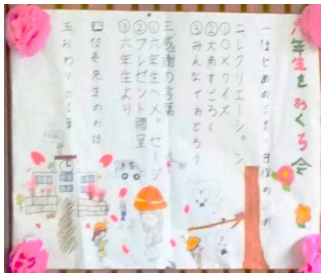 六年生をおくる会
一はじめの言葉
二レクリエーション
①○×クイズ
②大東すごろく
③みんなでおどろう
三感謝の言葉
①六年生へメッセージ
②プレゼント贈呈
③六年生より
四校長先生のお話
五おわりの言葉